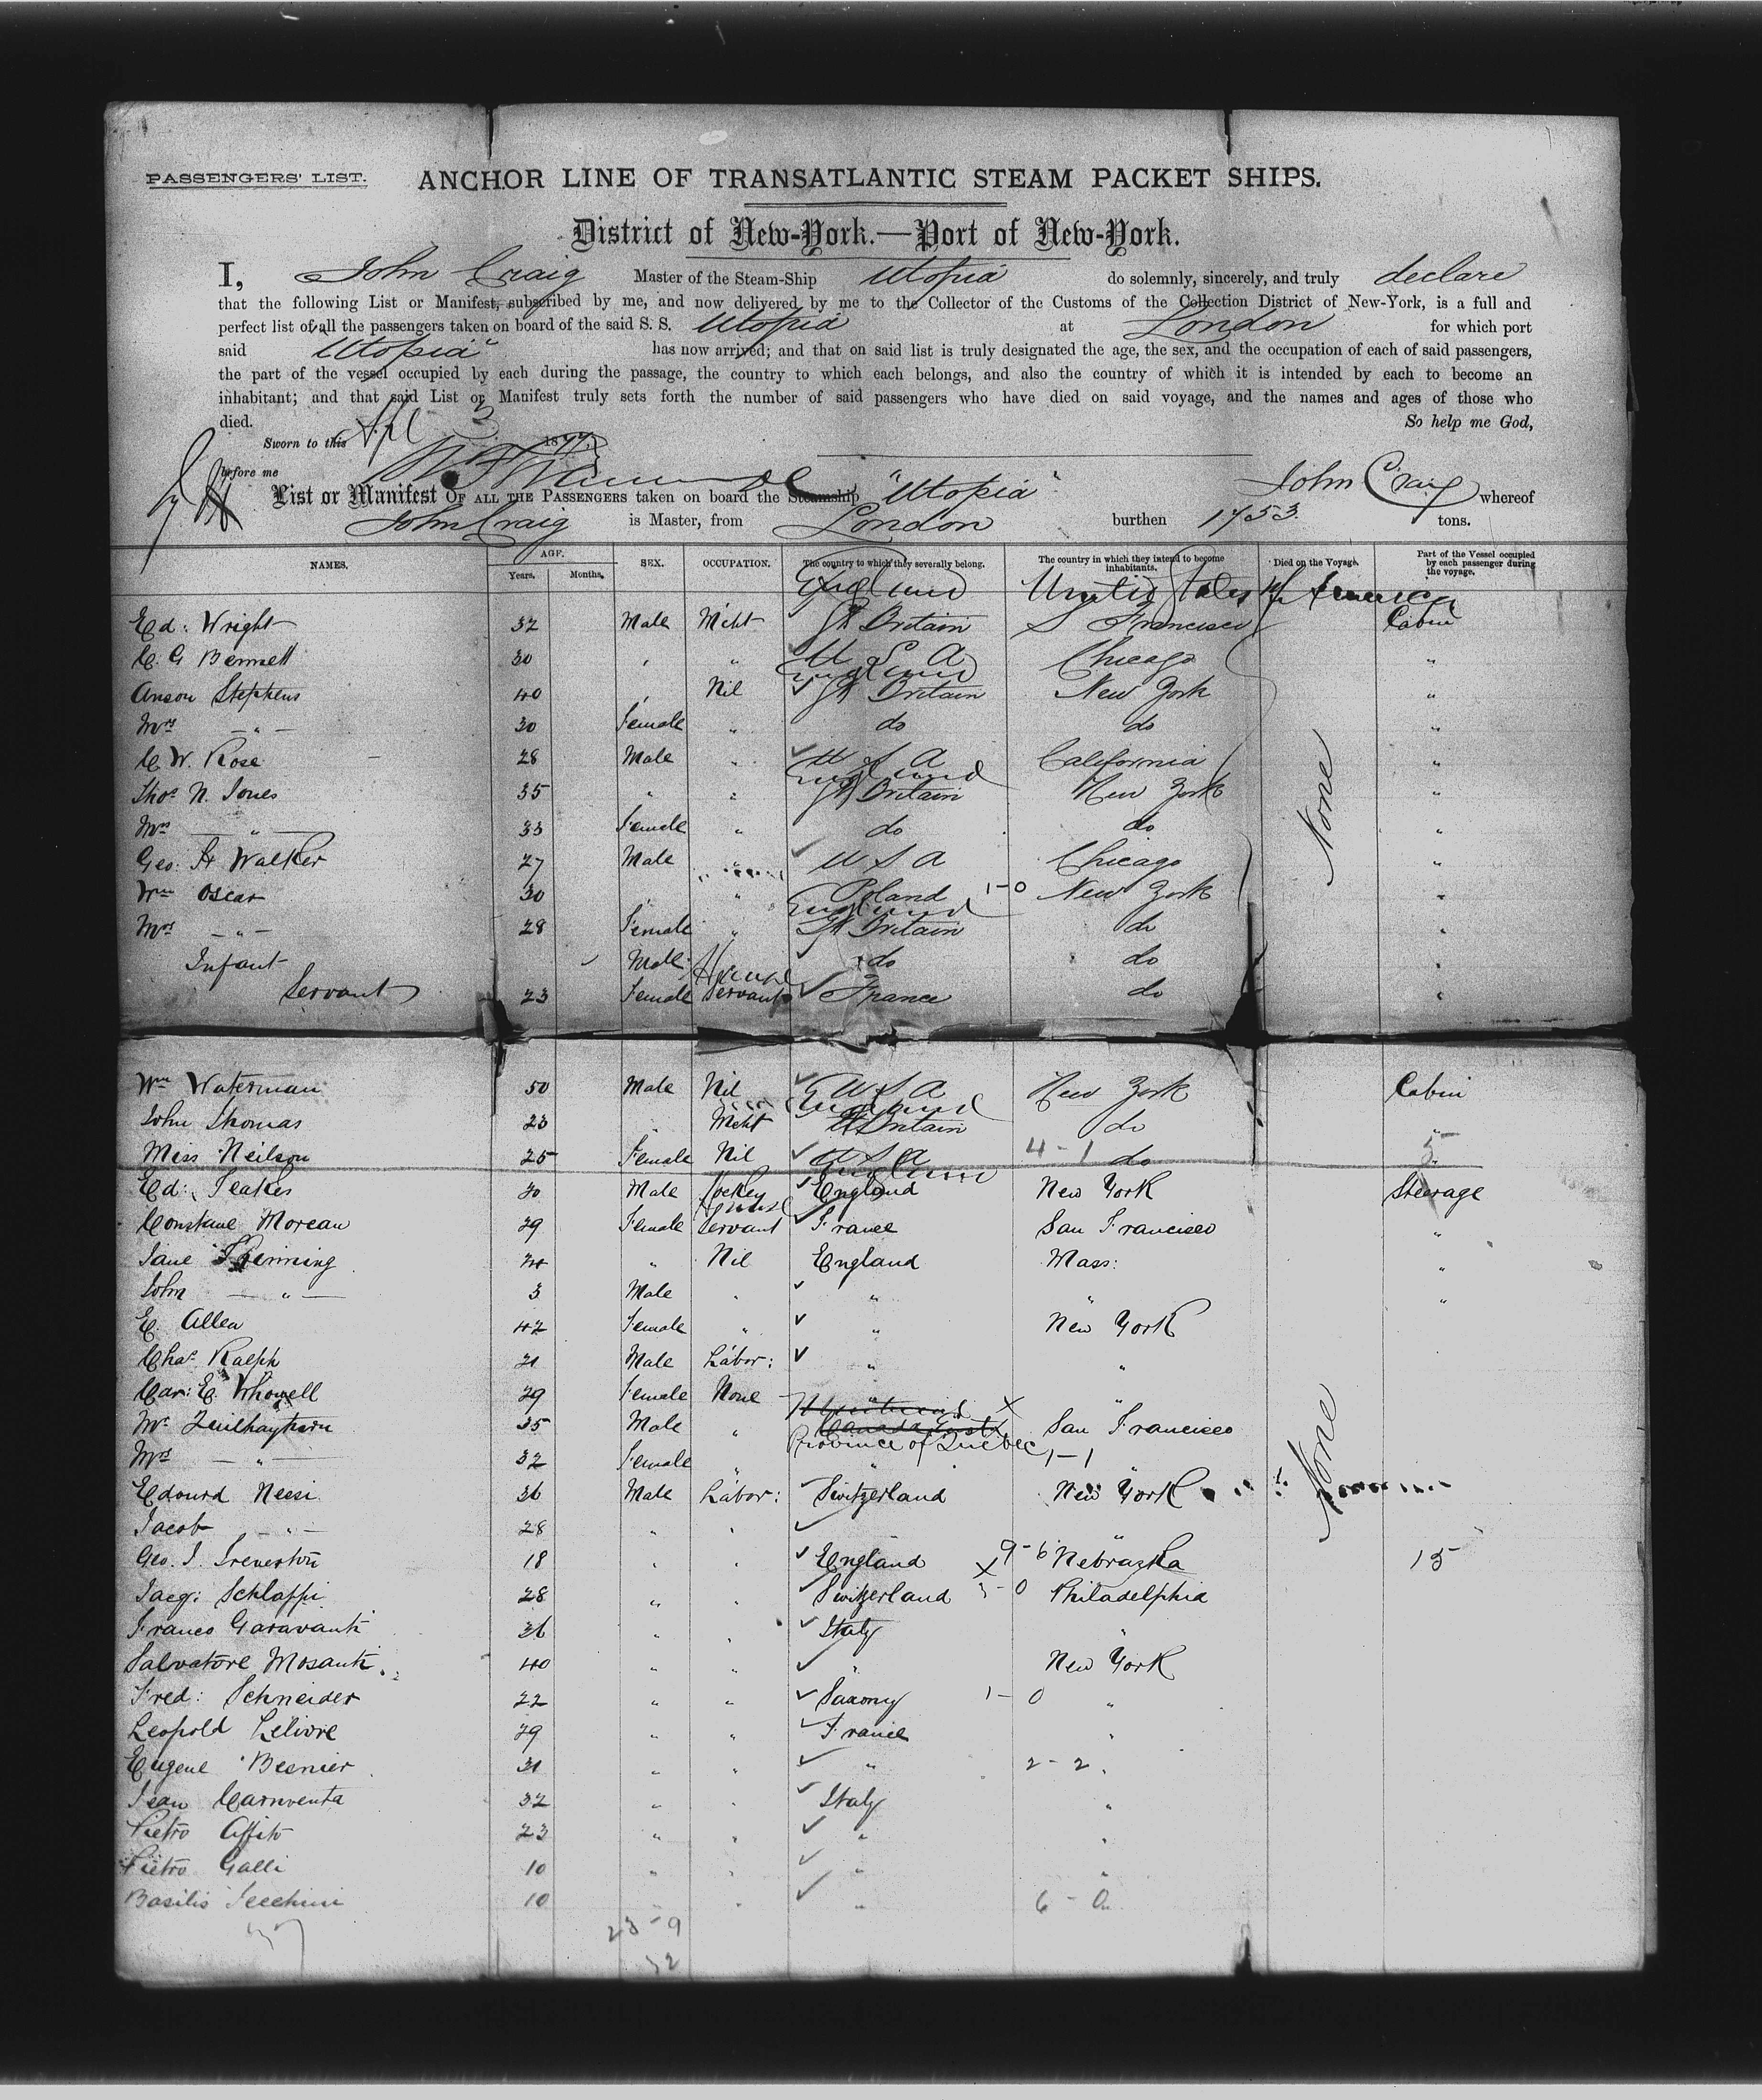 PASSENGERS' LIST.
ANCHOR LINE OF TRANSATLANTIC STEAM PACKET SHIPS.
District of New-York.—Port of New-York.
I, John Craig Master of the Steam-Ship Utopia do solemnly, sincerely, and truly declare
that the following List or Manifest, subscribed by me, and now delivered by me to the Collector of the Customs of the Collection District of New-York, is a full and
perfect list of all the passengers taken on board of the said S. S. Utopia at London for which port
said "Utopia" has now arrived; and that on said list is truly designated the age, the sex, and the occupation of each of said passengers,
the part of the vessel occupied by each during the passage, the country to which each belongs, and also the country of which it is intended by each to become an
inhabitant; and that said List or Manifest truly sets forth the number of said passengers who have died on said voyage, and the names and ages of those who
died. So help me God,
Sworn to this Apl 3 1877
before me John Craig
List or Manifest OF ALL THE PASSENGERS taken on board the Steamship "Utopia" whereof
John Craig is Master, from London burthen 1753 tons.
NAMES. AGE. Years. Months. SEX. OCCUPATION. The country to which they severally belong. The country in which they intend to become inhabitants. Died on the Voyage. Part of the Vessel occupied by each passenger during the voyage.
England United States of America
Ed: Wright 32 Male Mcht Gt Britain S Francisco Cabin
C. G Bennett 30 " " U S A Chicago "
England
Anson Stephens 40 " Nil Gt Britain New York "
Mrs — " — 30 Female " do do "
C. W. Rose 28 Male " U S A California "
England
Thos N. Jones 35 " " Gt Britain New York "
Mrs — " — 33 Female " do do "
Geo. H Walker 27 Male " U S A Chicago "
None
Wm Oscar 30 " " Poland 1-0 New York "
England
Mrs — " — 28 Female " Gt Britain do "
Infant Male do do "
House
Servant 23 Female Servant France do "
Wm Waterman 50 Male Nil U S A New York Cabin
England
John Thomas 23 " Mcht Gt Britain do "
Miss Neilson 25 Female Nil U S A 4-1 do 5
England
Ed: Teakes 20 Male Jockey England New York Steerage
House
Constane Moreau 29 Female Servant France San Francisco "
Jane 30 " Nil England Mass: "
John — " — 3 Male " " " "
E. Allen 42 Female " " New York
Chas Ralph 21 Male Labor: " "
Car: E. Whowell 29 Female None " "
Mr 35 Male " Canada East San Francisco
Province of Quebec
Mrs — " — 32 Female " " 1-1 "
None
Edourd Nessi 36 Male Labor: Switzerland New York
Jacob — " — 28 " " "
Geo. J. Treverton 18 " " England 9-6 Nebrazka 15
Jacq: Schlappi 28 " " Switzerland 3-0 Philadelphia
Franco Garavanti 36 " " Italy "
Salvatore Mosanti 40 " " " New York
Fred: Schneider 22 " " Saxony 1-0 "
Leopold Lelivre 29 " " France "
Eugene Besnier 31 " " " 2-2 "
Jean Carnventa 32 " " Italy "
Pietro Affito 23 " " " "
Pietro Galli 10 " " " "
Basilis Tecchini 10 " " " 6-0
23-9
32